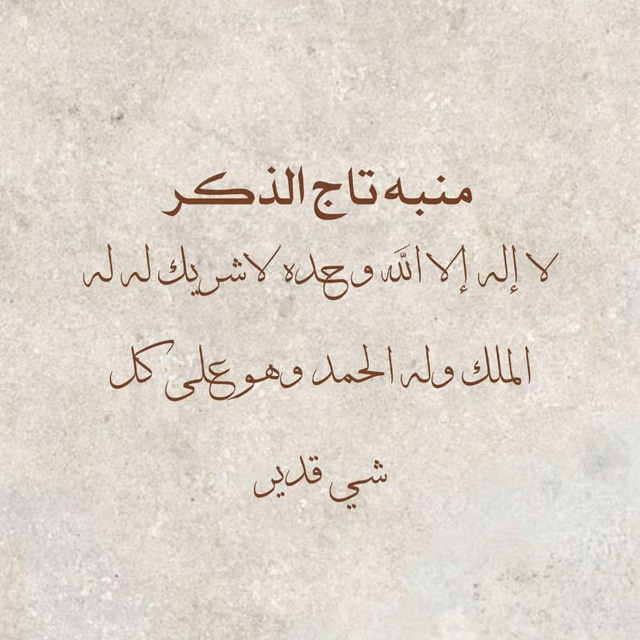 منبه تاج الذكر
لا إله إلا الله وحده لا شريك له له
الملك وله الحمد وهو على كل
شي قدير